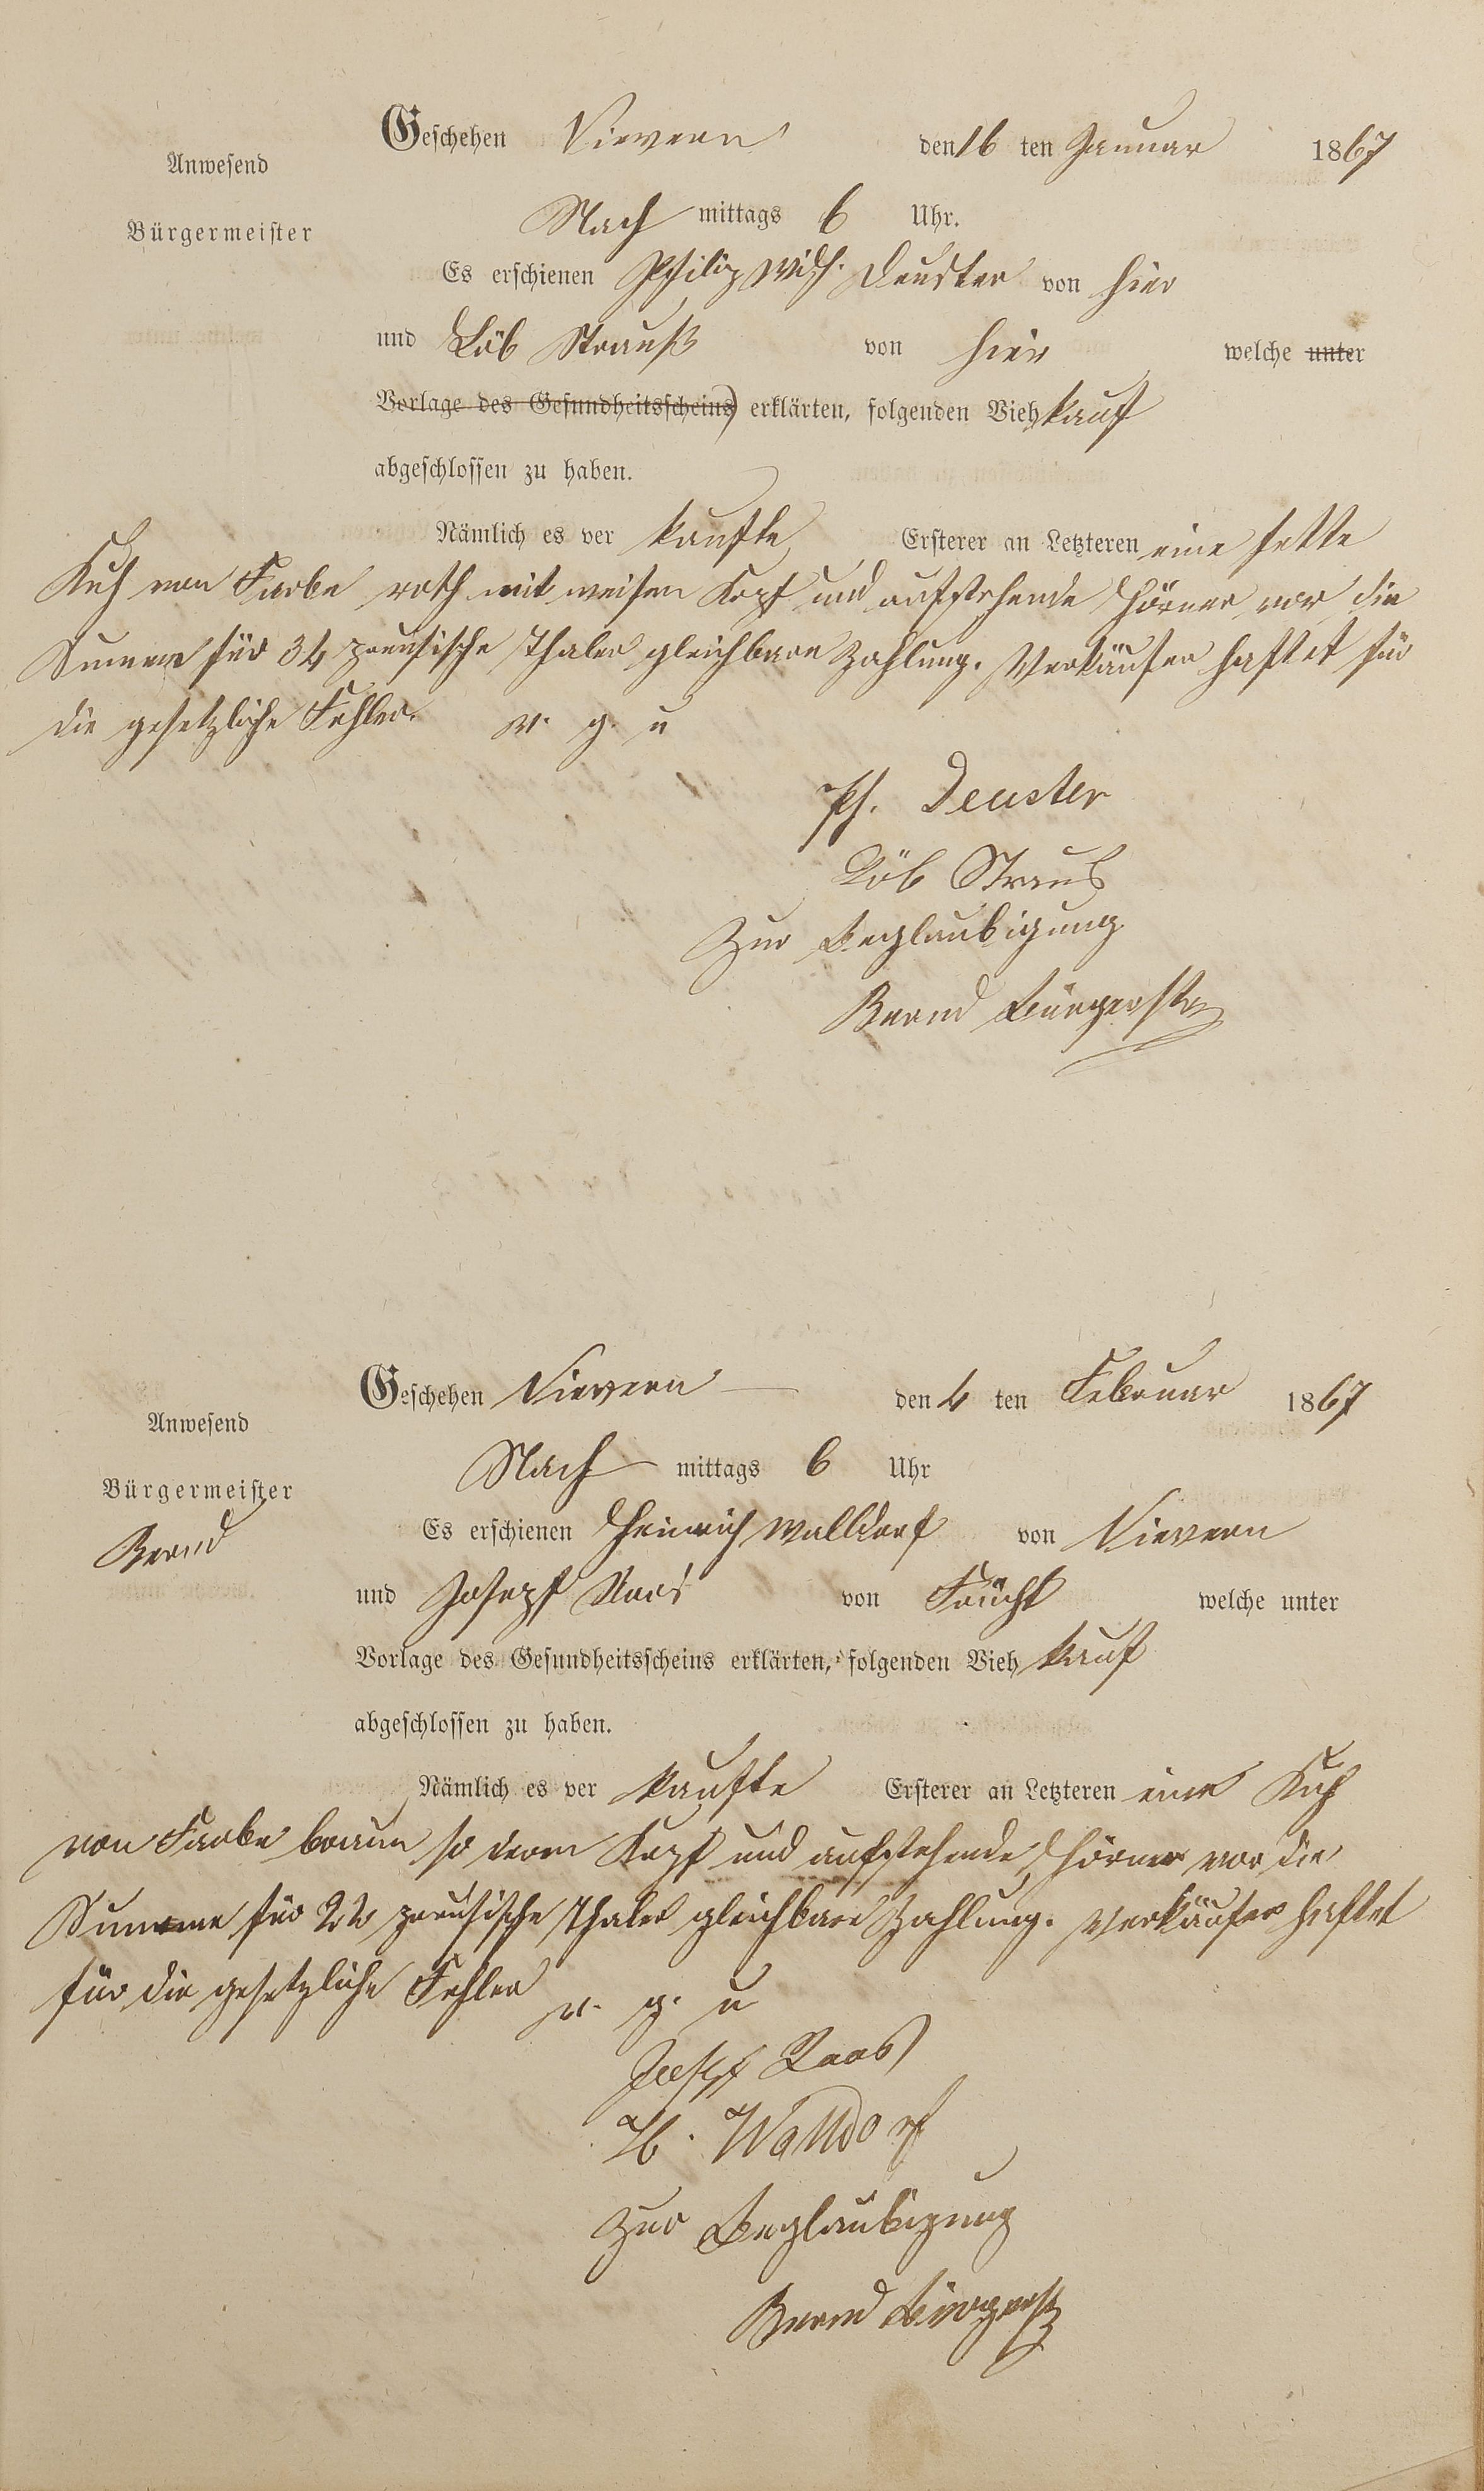 Geschehen Nievern den 16 ten Januar 1867
Anwesend
Bürgermeister
Nach mittags 6 Uhr.
Es erschienen Philip Deuster von hier
und Löb Strauß von hier welche unter
Vorlage des Gesundheitsscheins erklärten, folgenden Vieh kauf
abgeschlossen zu haben.
Nämlich es ver kaufte Ersterer an Letzteren eine fette
Kuh von Farbe roth mit weisen Kopf und aufstehende Hörner vor die
Summe für 34 preusische Thaler gleichbare Zahlung. Verkäufer haftet für
die gesetzliche Fehler. v. g. u
Ph. Deuster
Löb Straus
Zur Beglaubigung
Bernd Bürgerstr
Geschehen Nievern den 4 ten Februar 1867
Anwesend
Bürgermeister
Bernd
Nach mittags 6 Uhr
Es erschienen Heinrich Walldorf von Nievern
und Joseph Raas von Frücht welche unter
Vorlage des Gesundheitsscheins erklärten, folgenden Vieh kauf
abgeschlossen zu haben.
Nämlich es ver kaufte Ersterer an Letzteren eine Kuh
von Farbe braun so deren Kopf und aufstehende Hörner vor die
Summe für preusische Thaler gleichbare Zahlung. Verkäufer haftet
für die gesetzliche Fehler v. g. u
Josepf Raas
H. Walldorf
Zur Beglaubigung
Bernd Bürgerst